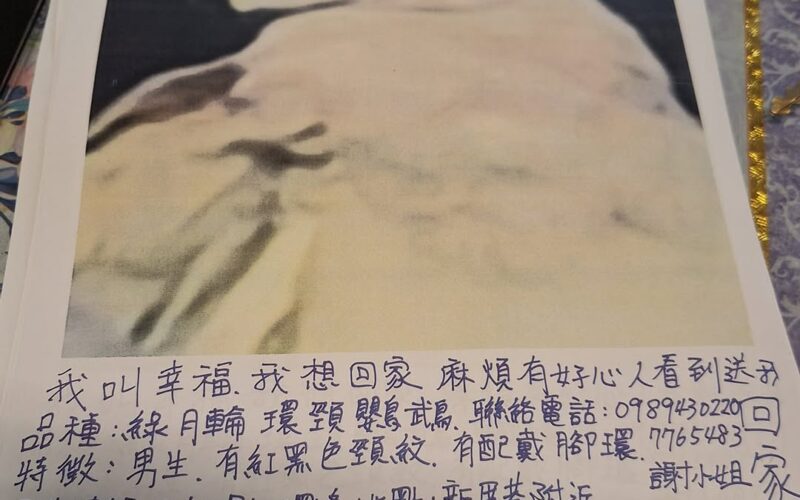 我叫幸福.我想回家 麻煩有好心人看到送我回家
品種:綠月輪 環頸鸚鵡.聯絡電話:0989430220
特徵:男生.有紅黑色頸紋.有配戴腳環.7765483
謝小姐